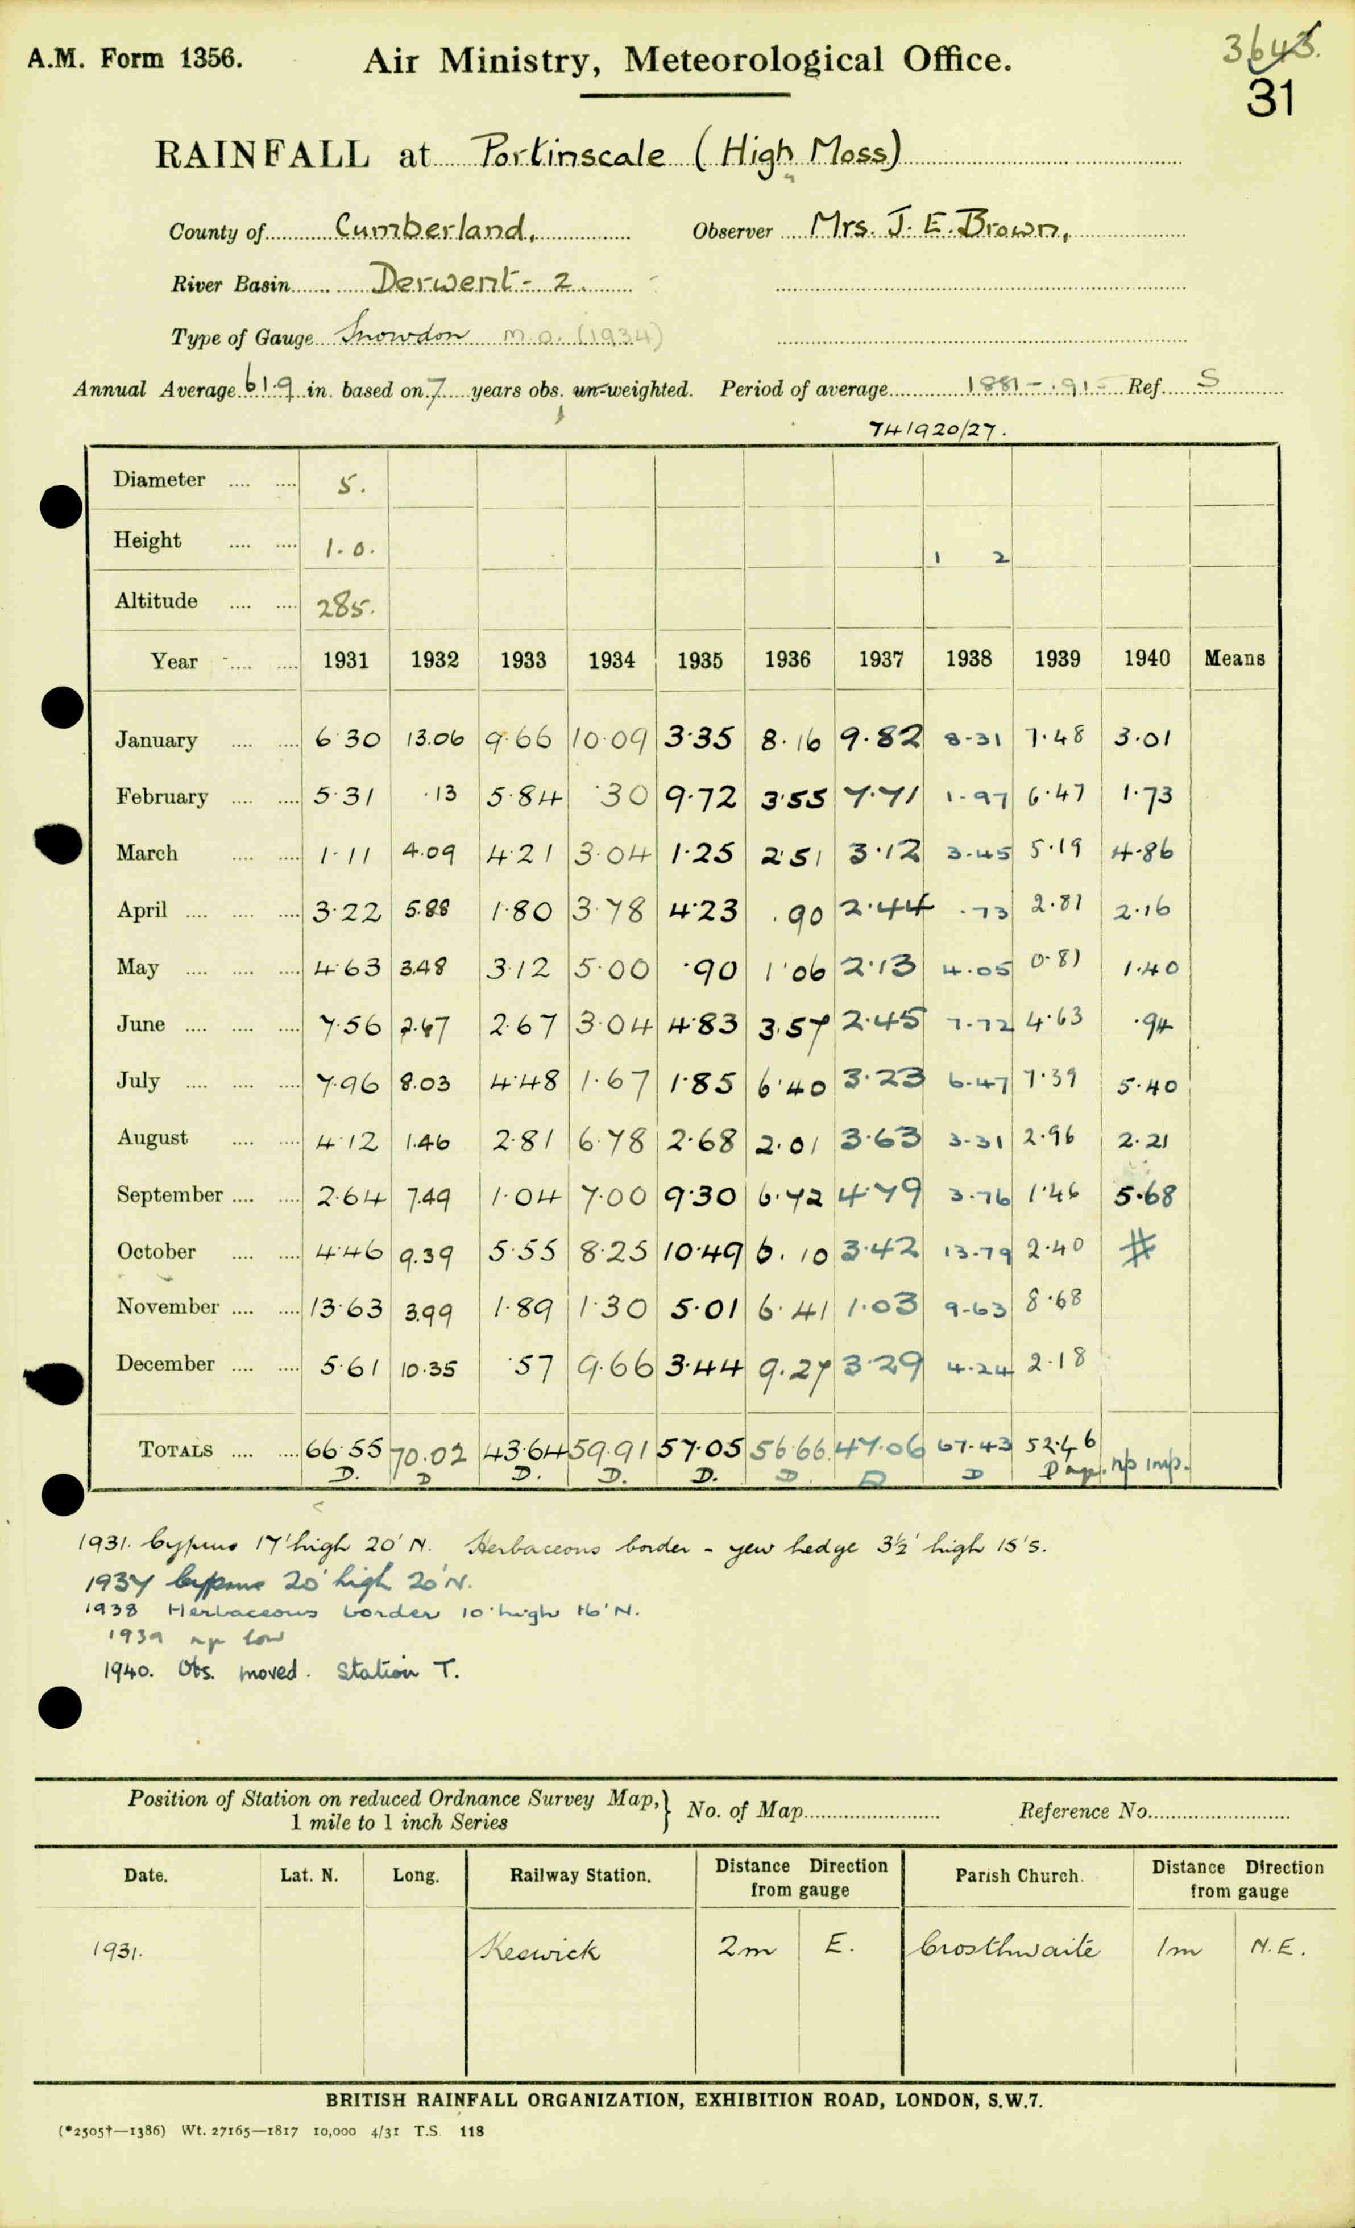 A.M. Form 1356.
Air Ministry, Meteorological Office.
3643.
31
RAINFALL at Portinscale (High Moss)
County of Cumberland, Observer Mrs. J. E. Brown,
River Basin Derwent - 2.
Type of Gauge Snowdon M.O. (1934)
Annual Average 61.9 in. based on 7 years obs. un-weighted. Period of average 1881-1915 Ref. S
74 1920/27.
Diameter 5.
Height 1.0. 1 2
Altitude 285.
Year 1931 1932 1933 1934 1935 1936 1937 1938 1939 1940 Means
January 6.30 13.06 9.66 10.09 3.35 8.16 9.82 8.31 7.48 3.01
February 5.31 .13 5.84 .30 9.72 3.55 7.71 1.97 6.47 1.73
March 1.11 4.09 4.21 3.04 1.25 2.51 3.12 3.45 5.19 4.86
April 3.22 5.88 1.80 3.78 4.23 .90 2.44 .73 2.81 2.16
May 4.63 3.48 3.12 5.00 .90 1.06 2.13 4.05 0.81 1.40
June 7.56 2.67 2.67 3.04 4.83 3.57 2.45 7.72 4.63 .94
July 7.96 8.03 4.48 1.67 1.85 6.40 3.23 6.47 7.39 5.40
August 4.12 1.46 2.81 6.78 2.68 2.01 3.63 3.31 2.96 2.21
September 2.64 7.49 1.04 7.00 9.30 6.72 4.79 3.76 1.46 5.68
October 4.46 9.39 5.55 8.25 10.49 6.10 3.42 13.79 2.40 #
November 13.63 3.99 1.89 1.30 5.01 6.41 1.03 9.63 8.68
December 5.61 10.35 .57 9.66 3.44 9.27 3.29 4.24 2.18
TOTALS 66.55 70.02 43.64 59.91 57.05 56.66 47.06 67.43 52.46 np imp.
D. D D. D. D. D D D D
1931. Cyprus 17' high 20' N. Herbaceous border - yew hedge 3½' high 15' S.
1937 Cyprus 20' high 20' N.
1938 Herbaceous border 10' high 16' N.
1939 low
1940. Obs. moved. Station T.
Position of Station on reduced Ordnance Survey Map, 1 mile to 1 inch Series } No. of Map Reference No.
Date. Lat. N. Long. Railway Station. Distance Direction from gauge Parish Church. Distance Direction from gauge
1931. Keswick 2m E. Crosthwaite 1m N.E.
BRITISH RAINFALL ORGANIZATION, EXHIBITION ROAD, LONDON, S.W.7.
(*2505†—1386) Wt. 27165—1817 10,000 4/31 T.S. 118